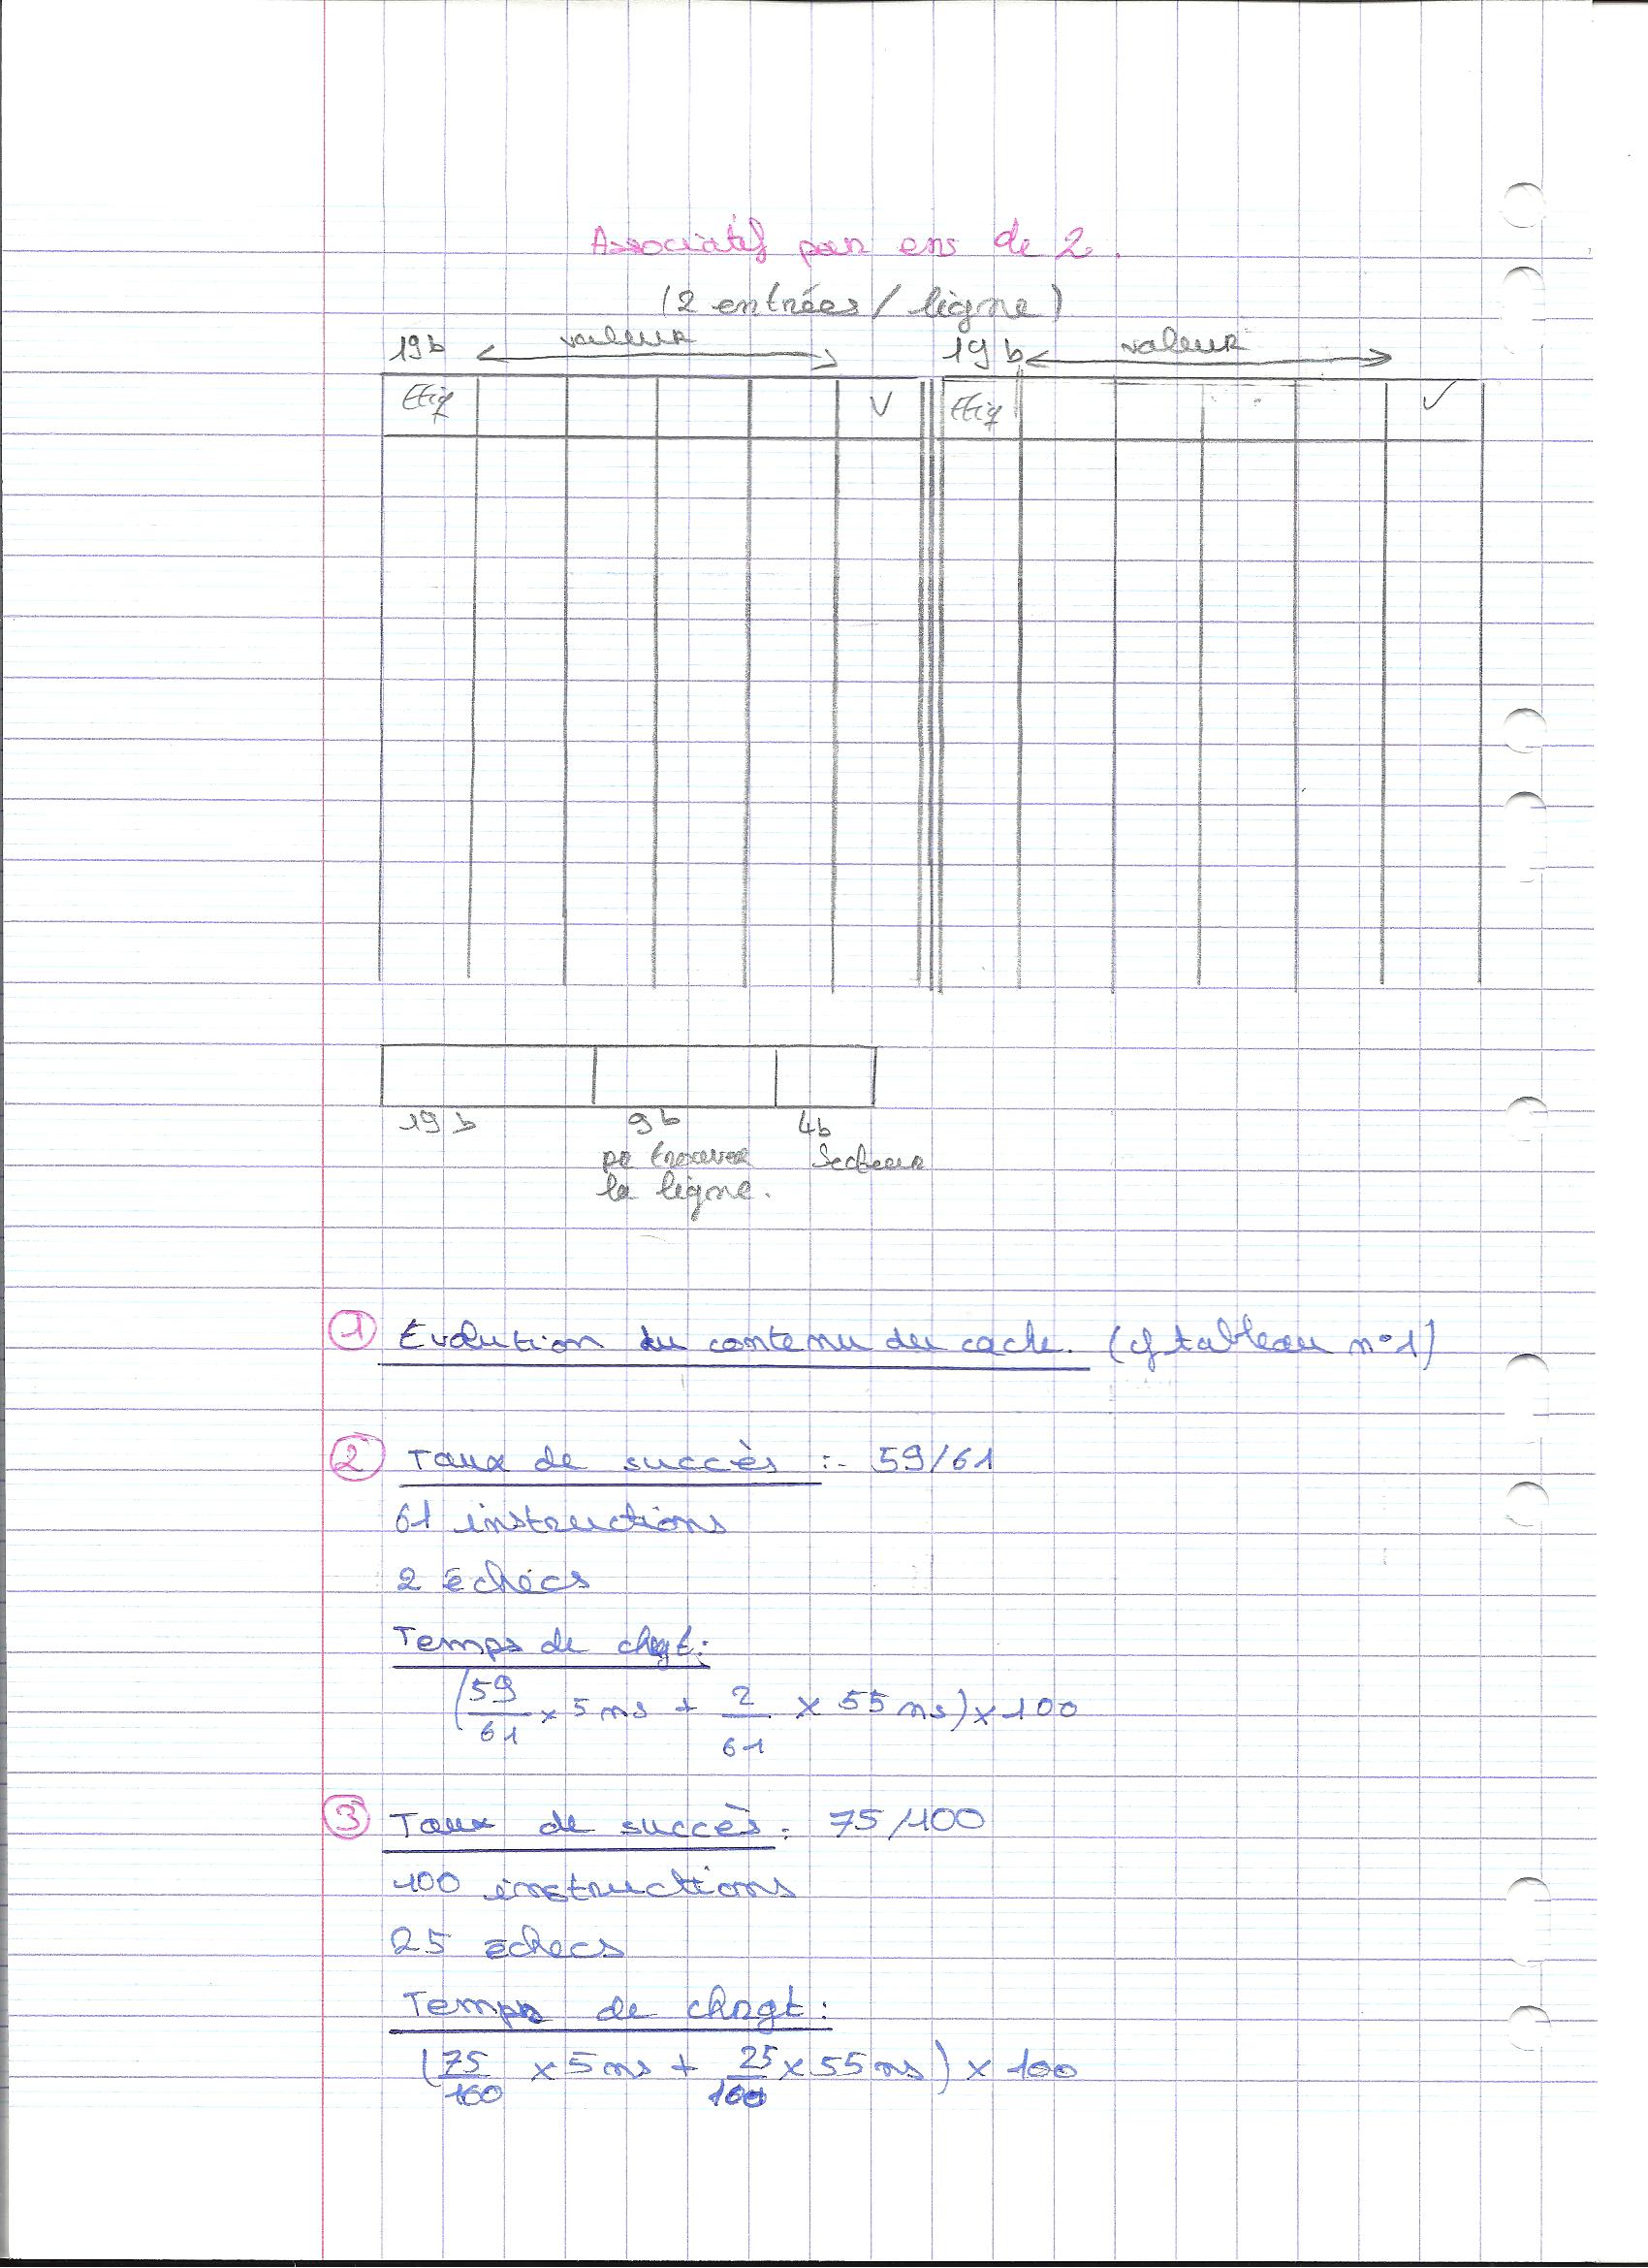 Associatif par ens de 2.
(2 entrées / ligne)
19b valeur 19b valeur
Etiq V Etiq V
19b 9b 4b
pr trouver Secteur
la ligne.
① Evolution du contenu du cache. (cf tableau n°1)
② Taux de succès :- 59/61
61 instructions
2 échecs
Temps de chgt:
(59/61 x 5 ns + 2/61 x 55 ns) x 100
③ Taux de succès : 75/100
100 instructions
25 échecs
Temps de chrgt :
(75/100 x 5 ns + 25/100 x 55 ns) x 100